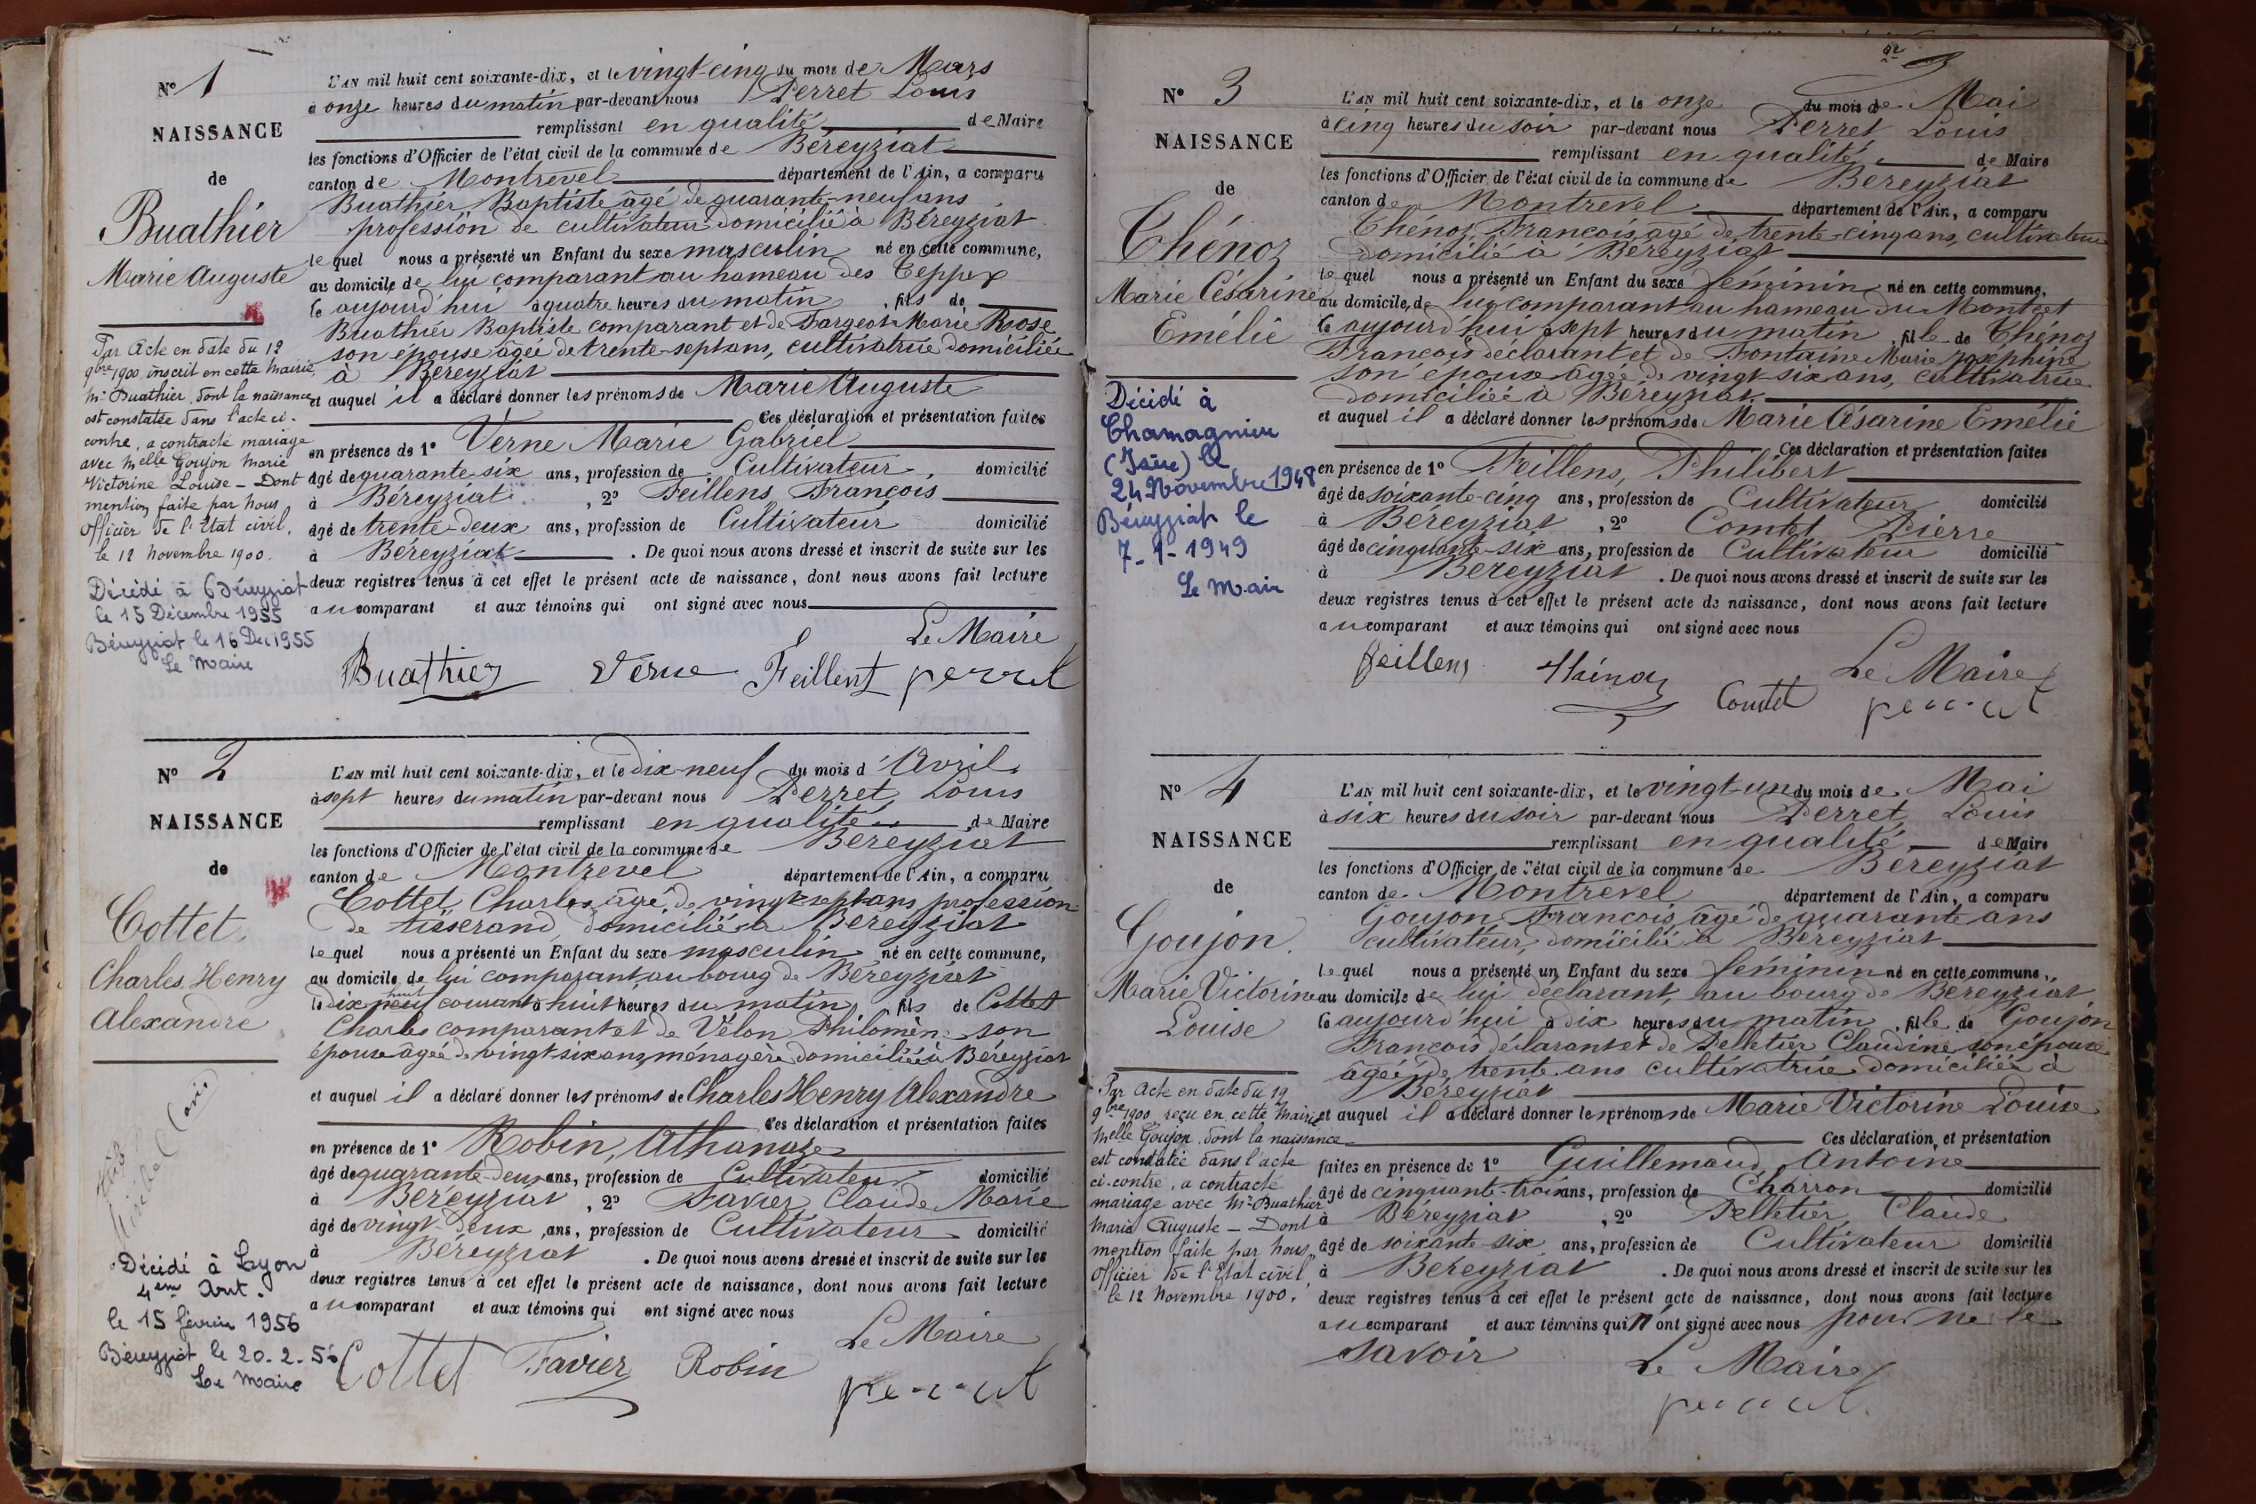 N° 1
NAISSANCE
de
Buathier
Marie Auguste
Par Acte en date du 12
9bre 1900 inscrit en cette Mairie,
Mr Buathier, dont la naissance
est constatée dans l'acte ci-
contre, a contracté mariage
avec Melle Goujon Marie
Victorine Louise – Dont
mention faite par nous
Officier de l'Etat civil.
le 12 novembre 1900.
Décédé à Béreyziat
le 15 Décembre 1955
Béreyziat le 16 Dec 1955
Le Maire
L'AN mil huit cent soixante-dix, et le vingt-cinq du mois de Mars
à onze heures du matin par-devant nous Perret Louis
remplissant en qualité de Maire
les fonctions d'Officier de l'état civil de la commune de Béreyziat
canton de Montrevel département de l'Ain, a comparu
Buathier Baptiste âgé de quarante-neuf ans
profession de cultivateur domicilié à Béreyziat
lequel nous a présenté un Enfant du sexe masculin né en cette commune,
au domicile de lui comparant au hameau des Teppes
le aujourd'hui à quatre heures du matin, fils de
Buathier Baptiste comparant et de Fargeot Marie Roose
son épouse âgée de trente-sept ans, cultivatrice domiciliée
à Béreyziat
et auquel il a déclaré donner les prénoms de Marie Auguste
Ces déclaration et présentation faites
en présence de 1° Verne Marie Gabriel
âgé de quarante-six ans, profession de Cultivateur, domicilié
à Béreyziat, 2° Feillens François
âgé de trente-deux ans, profession de Cultivateur domicilié
à Béreyziat. De quoi nous avons dressé et inscrit de suite sur les
deux registres tenus à cet effet le présent acte de naissance, dont nous avons fait lecture
au comparant et aux témoins qui ont signé avec nous
Le Maire
Buathier Verne Feillent perret
N° 2
NAISSANCE
de
Cottet
Charles Henry
Alexandre
Décédé à Lyon
4em Arrt.
le 15 février 1956
Béreyziat le 20-2-56
Le Maire
L'AN mil huit cent soixante-dix, et le dix neuf du mois d'Avril
à sept heures du matin par-devant nous Perret Louis
remplissant en qualité de Maire
les fonctions d'Officier de l'état civil de la commune de Béreyziat
canton de Montrevel département de l'Ain, a comparu
Cottet Charles âgé de vingt-sept ans profession
de tisserand domicilié à Béreyziat
lequel nous a présenté un Enfant du sexe masculin né en cette commune,
au domicile de lui comparant au bourg de Béreyziat
huit
le dix neuf courant à huit heures du matin, fils de Cottet
Charles comparant et de Vélon Philomène son
épouse âgée de vingt-six ans, ménagère domiciliée à Béreyziat
et auquel il a déclaré donner les prénoms de Charles Henry Alexandre
Ces déclaration et présentation faites
en présence de 1° Robin, Athanaze
âgé de quarante-deux ans, profession de Cultivateur domicilié
à Béreyziat, 2° Favier Claude Marie
âgé de vingt-deux ans, profession de Cultivateur domicilié
à Béreyziat. De quoi nous avons dressé et inscrit de suite sur les
deux registres tenus à cet effet le présent acte de naissance, dont nous avons fait lecture
au comparant et aux témoins qui ont signé avec nous
Le Maire
Cottet Favier Robin perret
N° 3
NAISSANCE
de
Thénoz
Marie Césarine
Emélie
Décédé à
Chamagnieu
(Isère) le
24 Novembre 1948
Béreyziat le
7-1-1949
Le Maire
L'AN mil huit cent soixante-dix, et le onze du mois de Mai
à cinq heures du soir par-devant nous Perret Louis
remplissant en qualité de Maire
les fonctions d'Officier de l'état civil de la commune de Béreyziat
canton de Montrevel département de l'Ain, a comparu
Thénoz François âgé de trente-cinq ans, cultivateur
domicilié à Béreyziat
lequel nous a présenté un Enfant du sexe féminin né en cette commune,
au domicile de lui comparant au hameau du Montcet
le aujourd'hui à sept heures du matin, fille de Thénoz
François déclarant et de Fontaine Marie Josephine
son épouse âgée de vingt-six ans, cultivatrice
domiciliée à Béreyziat
et auquel il a déclaré donner les prénoms de Marie Césarine Emélie
Ces déclaration et présentation faites
en présence de 1° Feillens, Philibert
âgé de soixante-cinq ans, profession de Cultivateur domicilié
à Béreyziat, 2° Comtet Pierre
âgé de cinquante-six ans, profession de Cultivateur domicilié
à Béreyziat. De quoi nous avons dressé et inscrit de suite sur les
deux registres tenus à cet effet le présent acte de naissance, dont nous avons fait lecture
au comparant et aux témoins qui ont signé avec nous
Le Maire
feillens Thénoz Comtet perret
N° 4
NAISSANCE
de
Goujon
Marie Victorine
Louise
Par Acte en date du 12
9bre 1900 reçu en cette Mairie
Melle Goujon, dont la naissance
est constatée dans l'acte
ci-contre, a contracté
mariage avec Mr Buathier
Marie Auguste – Dont
mention faite par nous
Officier de l'Etat civil,
le 12 Novembre 1900.
L'AN mil huit cent soixante-dix, et le vingt-un du mois de Mai
à six heures du soir par-devant nous Perret Louis
remplissant en qualité de Maire
les fonctions d'Officier de l'état civil de la commune de Béreyziat
canton de Montrevel département de l'Ain, a comparu
Goujon François âgé de quarante ans
cultivateur, domicilié à Béreyziat
lequel nous a présenté un Enfant du sexe féminin né en cette commune,
au domicile de lui déclarant, au bourg de Béreyziat
le aujourd'hui à dix heures du matin, fille de Goujon
François déclarant et de Pelletier Claudine son épouse
âgée de trente ans cultivatrice domiciliée à
Béreyziat
et auquel il a déclaré donner les prénoms de Marie Victorine Louise
Ces déclaration et présentation
faites en présence de 1° Guillemaud Antoine
âgé de cinquante-trois ans, profession de Charron domicilié
à Béreyziat, 2° Pelletier Claude
âgé de soixante-six ans, profession de Cultivateur domicilié
à Béreyziat. De quoi nous avons dressé et inscrit de suite sur les
deux registres tenus à cet effet le présent acte de naissance, dont nous avons fait lecture
au comparant et aux témoins qui n'ont signé avec nous pour ne le
savoir
Le Maire
perret